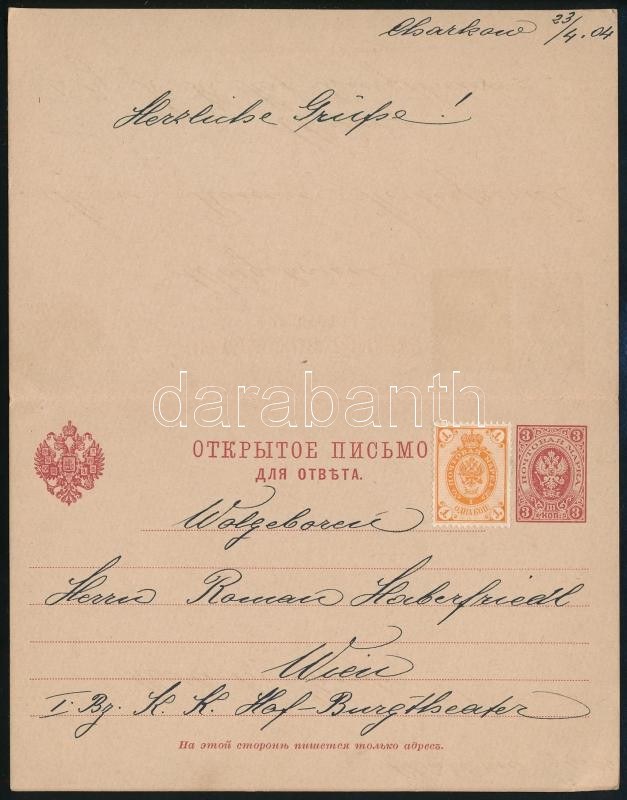 Charkow 23/4. 04
Herzliche Grüße!
darabanth
ОТКРЫТОЕ ПИСЬМО
ДЛЯ ОТВѢТА.
1 1
ПОЧТОВАЯ МАРКА
ОДНА КОП.
1 1
3 3
ПОЧТОВАЯ МАРКА
III
3 КОП. 3
Wolgeboren
Herrn Roman Haberfriedl
Wien
I. Bz. K. K. Hof-Burgtheater
На этой сторонѣ пишется только адресъ.